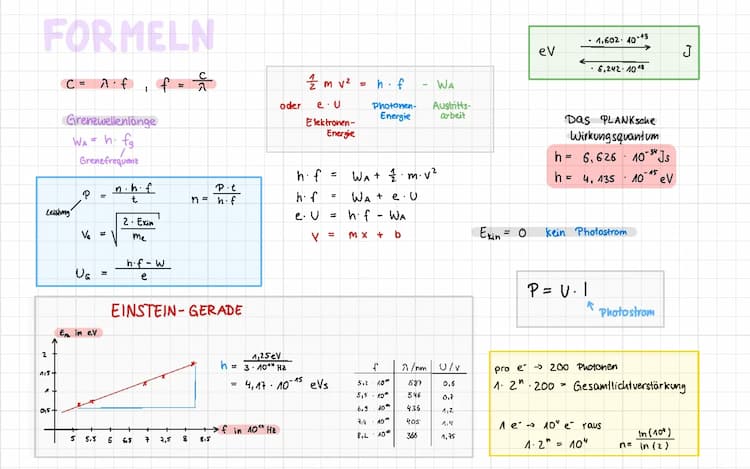 FORMELN
C = λ · f , f = c/λ
Grenzwellenlänge
W_A = h · f_g
Grenzfrequenz
1/2 m v² = h · f - W_A
oder e · U Photonen- Austritts-
Elektronen- Energie arbeit
Energie
eV · 1,602 · 10⁻¹⁹ J
· 6,242 · 10¹⁸
Das PLANKsche
Wirkungsquantum
h = 6,626 · 10⁻³⁴ Js
h = 4,135 · 10⁻¹⁵ eV
P = n · h · f / t n = P · t / h · f
Leistung
V_e = √(2 · E_kin / m_e)
U_G = h · f - W / e
h · f = W_A + 1/2 · m · v²
h · f = W_A + e · U
e · U = h · f - W_A
Y = mx + b
E_kin = 0 kein Photostrom
P = U · I
Photostrom
EINSTEIN-GERADE
in eV
2
1,5
1
0,5
5 5,5 6 6,5 7 7,5 8 8,5
f in 10¹⁴ Hz
h = 1,25eV / 3 · 10¹⁴ Hz
= 4,17 · 10⁻¹⁵ eVs
f λ/nm U/V
5,2 · 10¹⁴ 587 0,6
5,5 · 10¹⁴ 546 0,7
6,9 · 10¹⁴ 436 1,2
7,4 · 10¹⁴ 405 1,4
8,2 · 10¹⁴ 366 1,75
pro e⁻ → 200 Photonen
1 · 2ⁿ · 200 = Gesamtlichtverstärkung
1 e⁻ → 10⁴ e⁻ raus
1 · 2ⁿ = 10⁴ n = ln(10⁴) / ln(2)